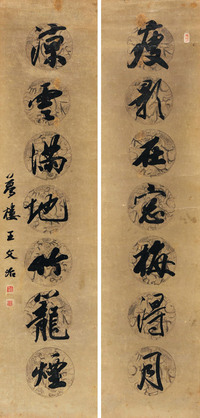 瘦影在窗梅得月
涼雲滿地竹籠煙
夢樓王文治